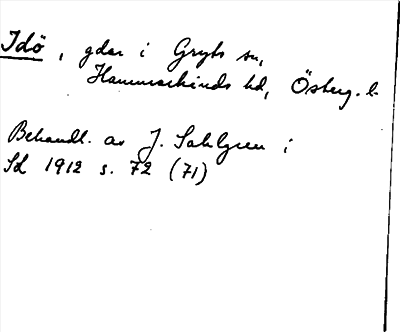 Idö, gdar i Gryts sn,
Hammarkinds hd, Österg. l.
Behandl. av J. Sahlgren i
Sd 1912 s. 72 (71)